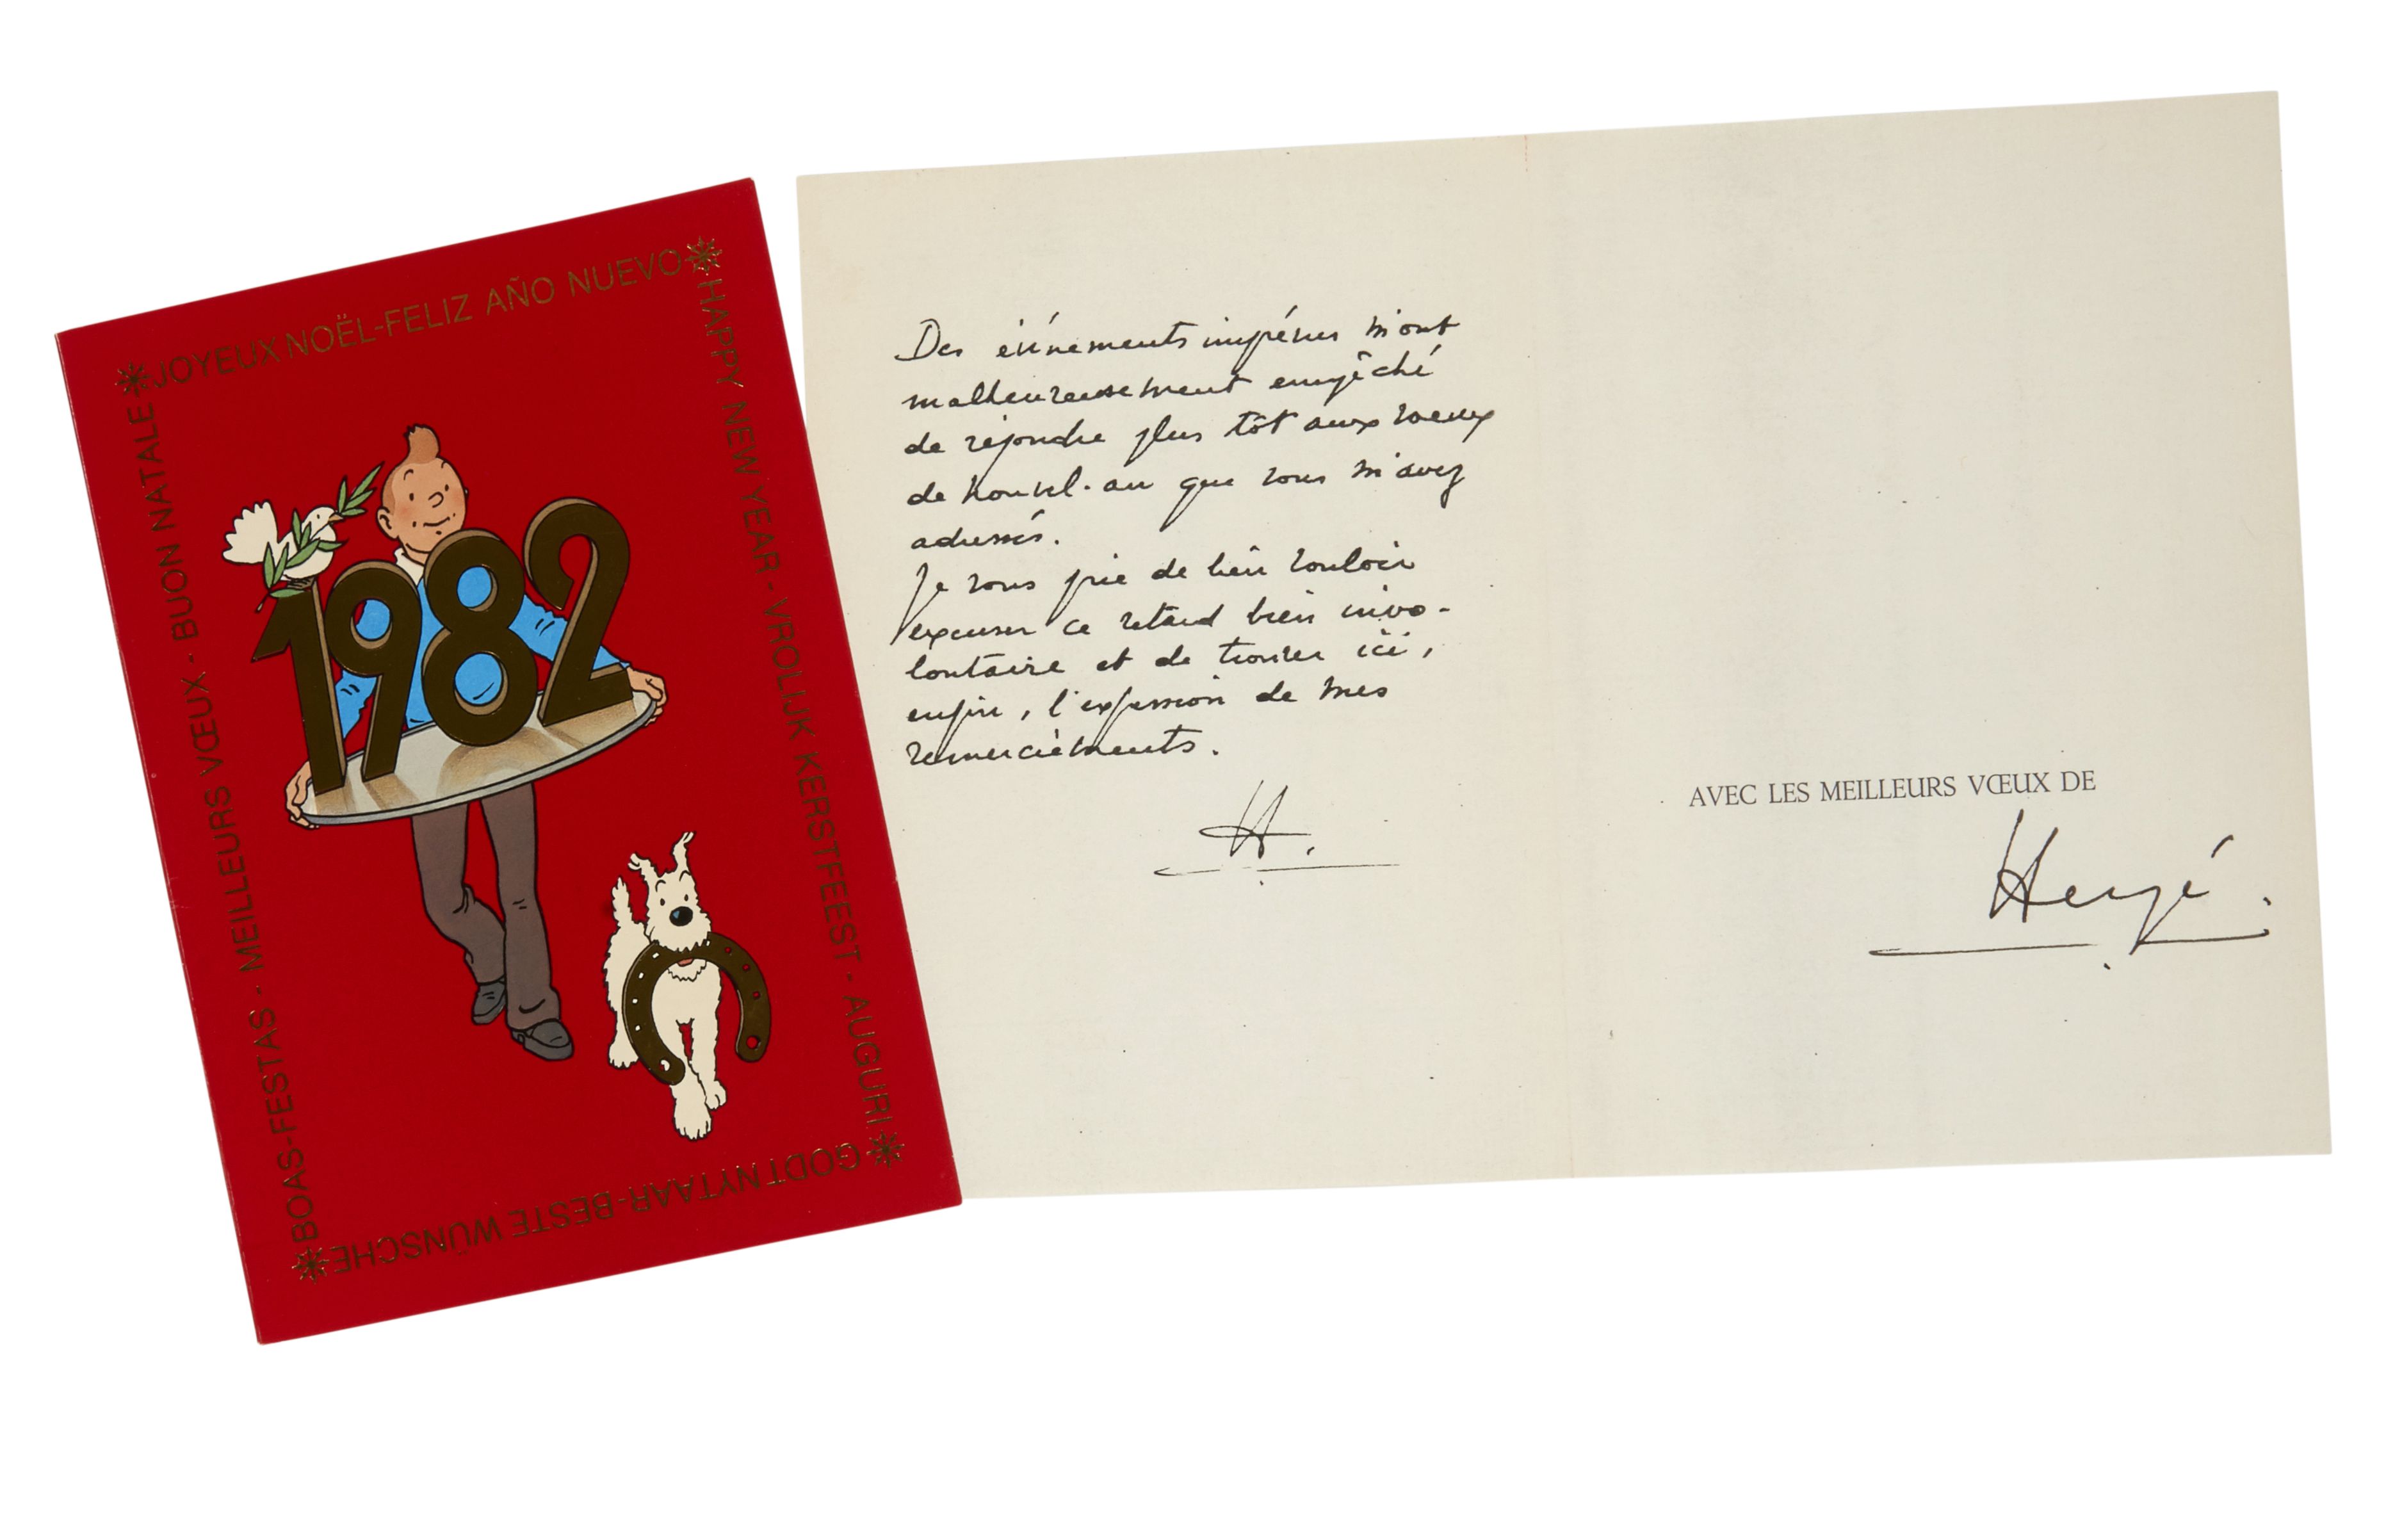 *JOYEUX NOËL-FELIZ AÑO NUEVO*
HAPPY NEW YEAR - VROLIJK KERSTFEEST - AUGURI*
GODT NYTAAR-BESTE WÜNSCHE*
BOAS-FESTAS - MEILLEURS VŒUX - BUON NATALE
1982
Des événements imprévus m'ont
malheureusement empêché
de répondre plus tôt aux vœux
de nouvel-an que vous m'avez
adressés.
Je vous prie de bien vouloir
excuser ce retard bien invo-
lontaire et de trouver ici,
enfin, l'expression de mes
remerciements.
H.
AVEC LES MEILLEURS VŒUX DE
Hergé.